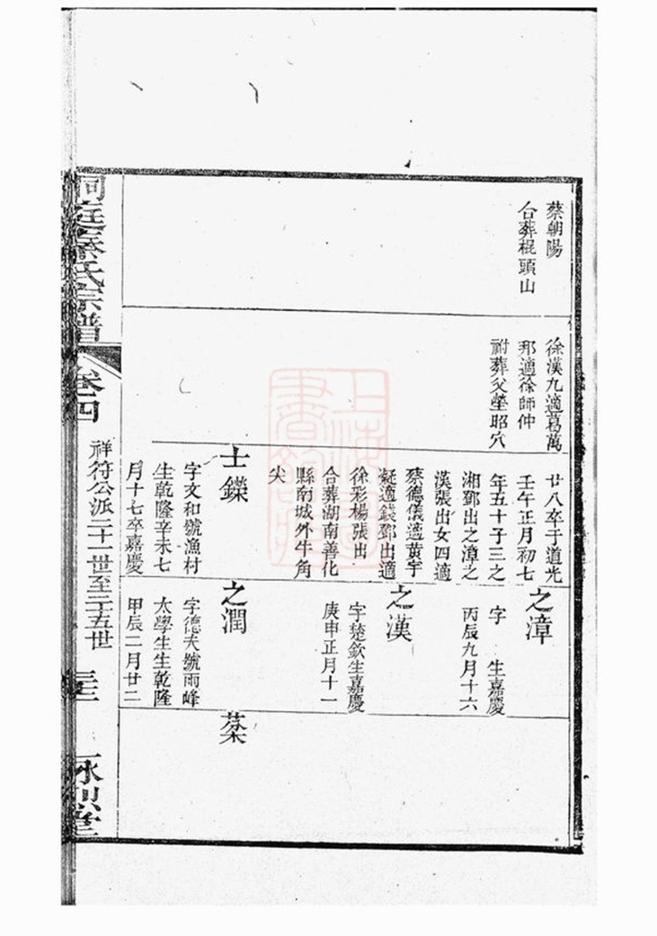 蔡朝陽
合葬棍頭山
徐漢九適葛萬
邦適徐師仲
祔葬父塋昭穴
廿八卒于道光
壬午正月初七
年五十子三之
湘鄧出之漳之
漢張出女四適
蔡德儀適黃宇
凝適錢鄧出適
徐彩楊張出
合葬湖南善化
縣南城外牛角
尖
之漳
字 生嘉慶
丙辰九月十六
之漢
字楚欽生嘉慶
庚申正月十一
士鑅
字文和號漁村
生乾隆辛未七
月十七卒嘉慶
之潤
字德夫號雨峰
太學生生乾隆
甲辰二月廿二
洞庭秦氏宗譜
卷四
祥符公派二十一世至二十五世